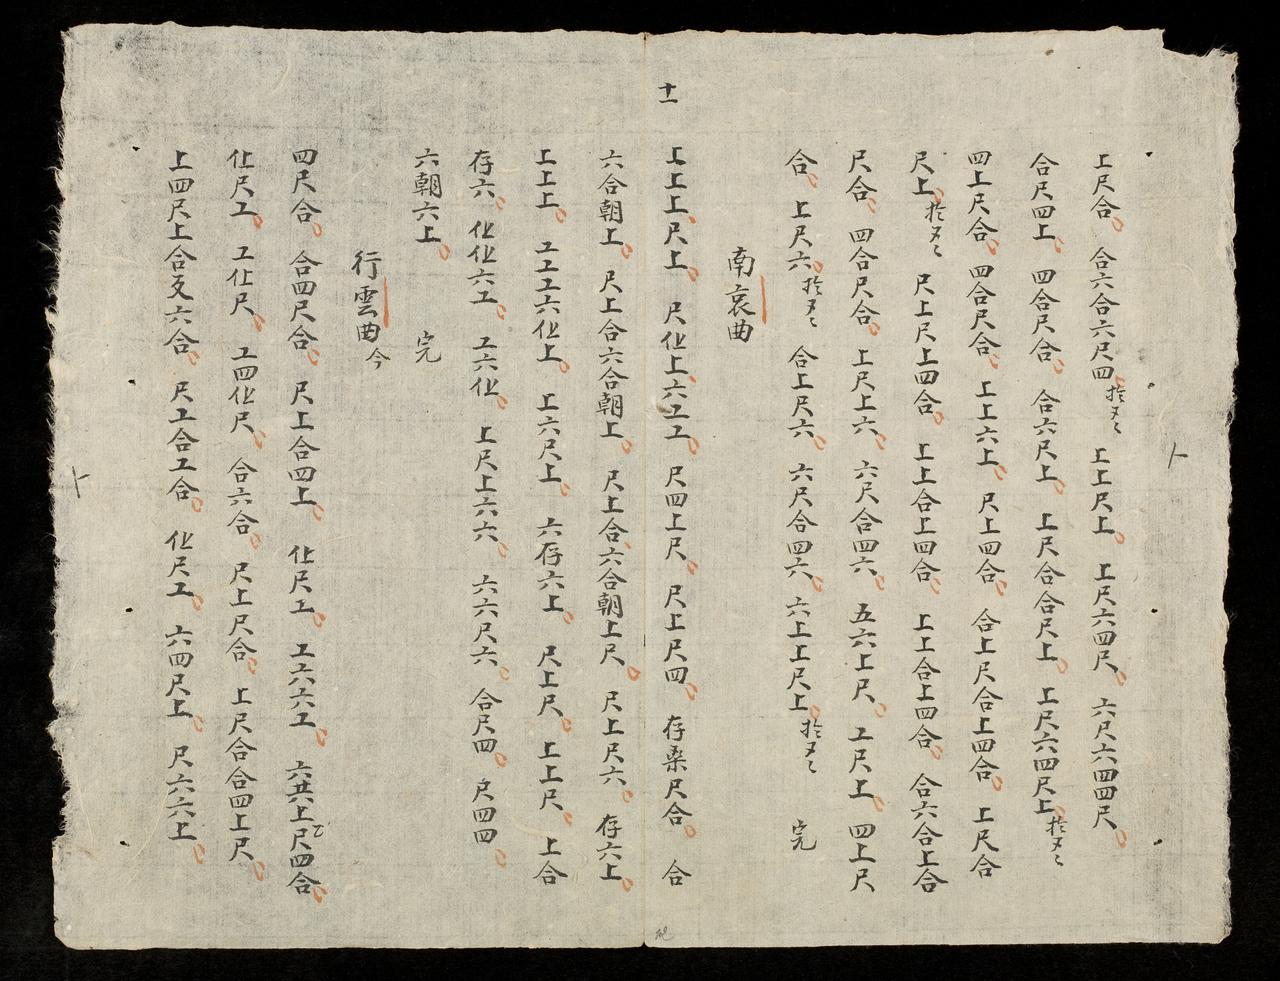 上尺合 合六合六尺四 上上尺上 上尺六四尺 六尺六四四尺
合尺四上 四合尺合 合六尺上 上尺合合尺上 上尺六四尺上
四上尺合 四合尺合 上上六上 尺上四合 合上尺合上四合 上尺合
尺上 尺上尺上四合 上上合上四合 上上合上四合 合六合上合
尺合 四合尺合 上尺上六 六尺合四六 五六上尺 工尺上 四上尺
合 上尺六 合上尺六 六尺合四六 六上上尺上 完
南哀曲
十一
上上上尺上 尺化上六工工 尺四上尺 尺上尺四 存桒尺合 合
六合朝上 尺上合六合朝上 尺上合六合朝上尺 尺上尺六 存六上
上上上 工工工六化上 上六尺上 六存六上 尺上尺 上上尺 上合
存六 化化六工 工六化 上尺上六六 六六尺六 合尺四 尺四四
六朝六上 完
行雲曲 今
四尺合 合四尺合 尺上合四上 化尺工 工六六工 六六上尺四合
化尺工 工化尺 工四化尺 合六合 尺上尺合 上尺合合四上尺
上四尺上合六合 尺工合工合 化尺工 六四尺上 尺六六上